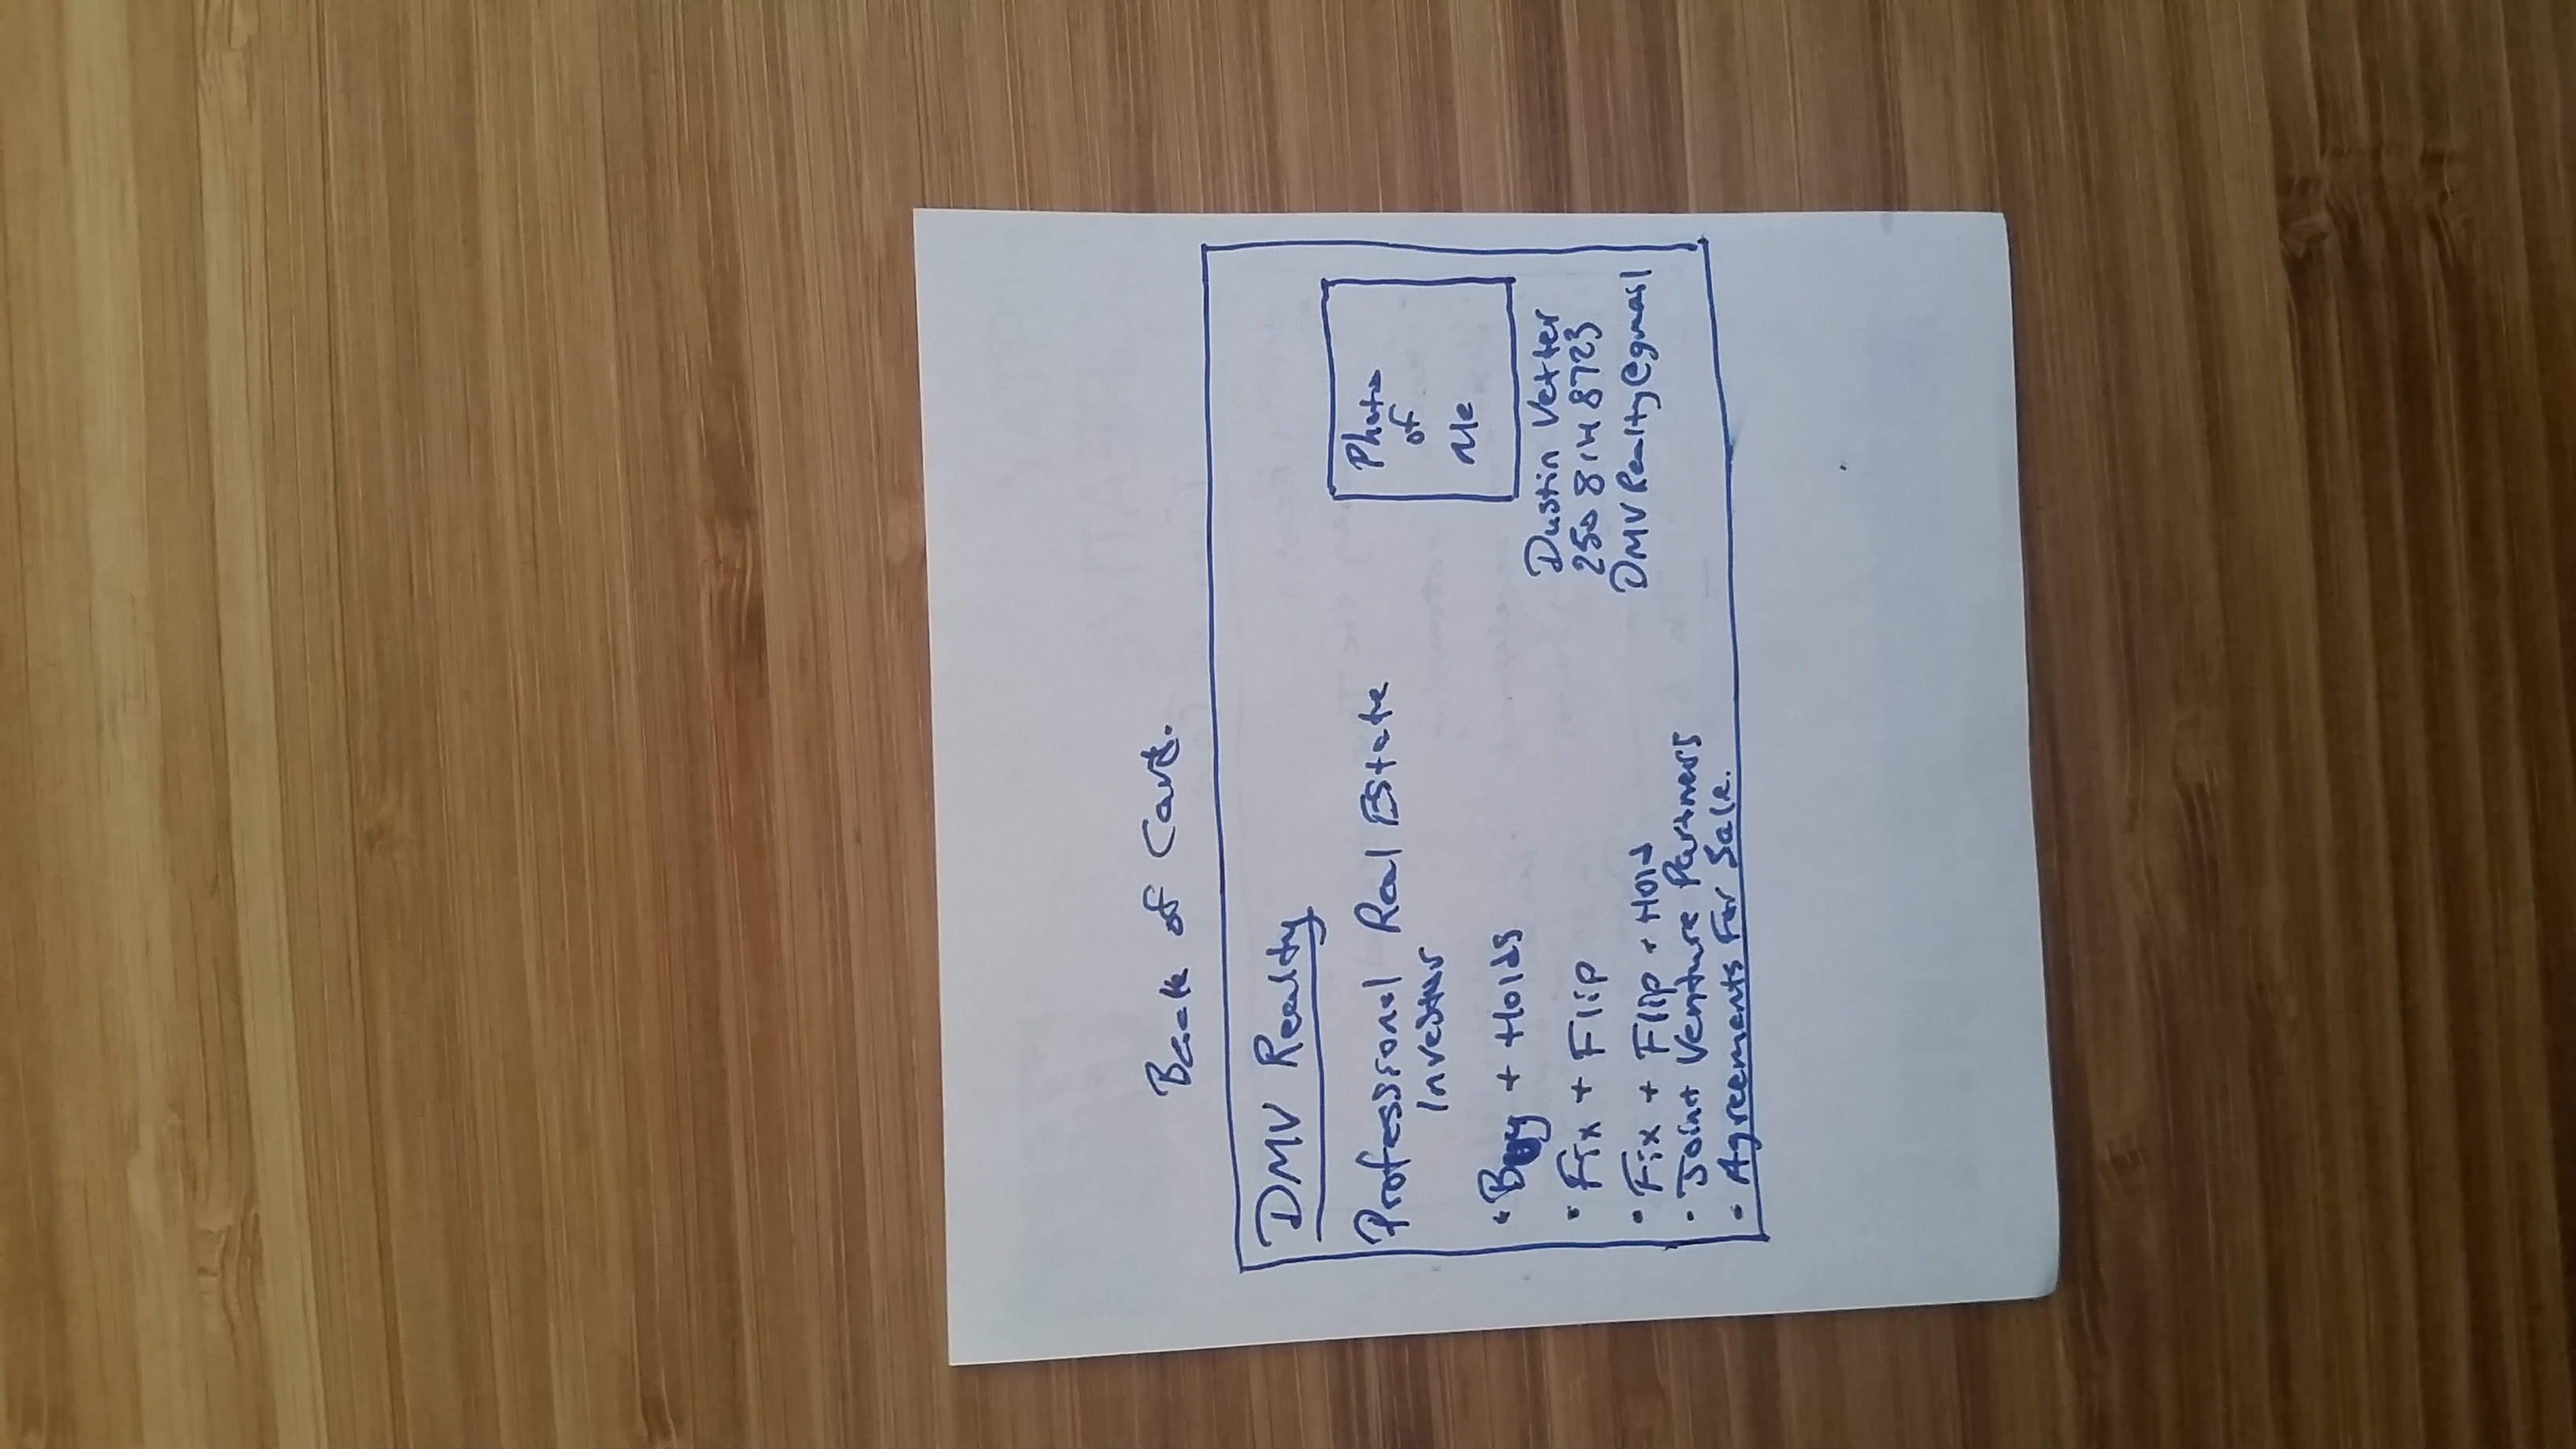 Back of Card.
DMV Realty
Professional Real Estate
Investor
• Buy + Holds
• Fix + Flip
• Fix + Flip + Hold
• Joint Venture Partners
• Agreements For Sale.
Photo
of
Me
Dustin Vetter
250 814 8723
DMVRealty@gmail